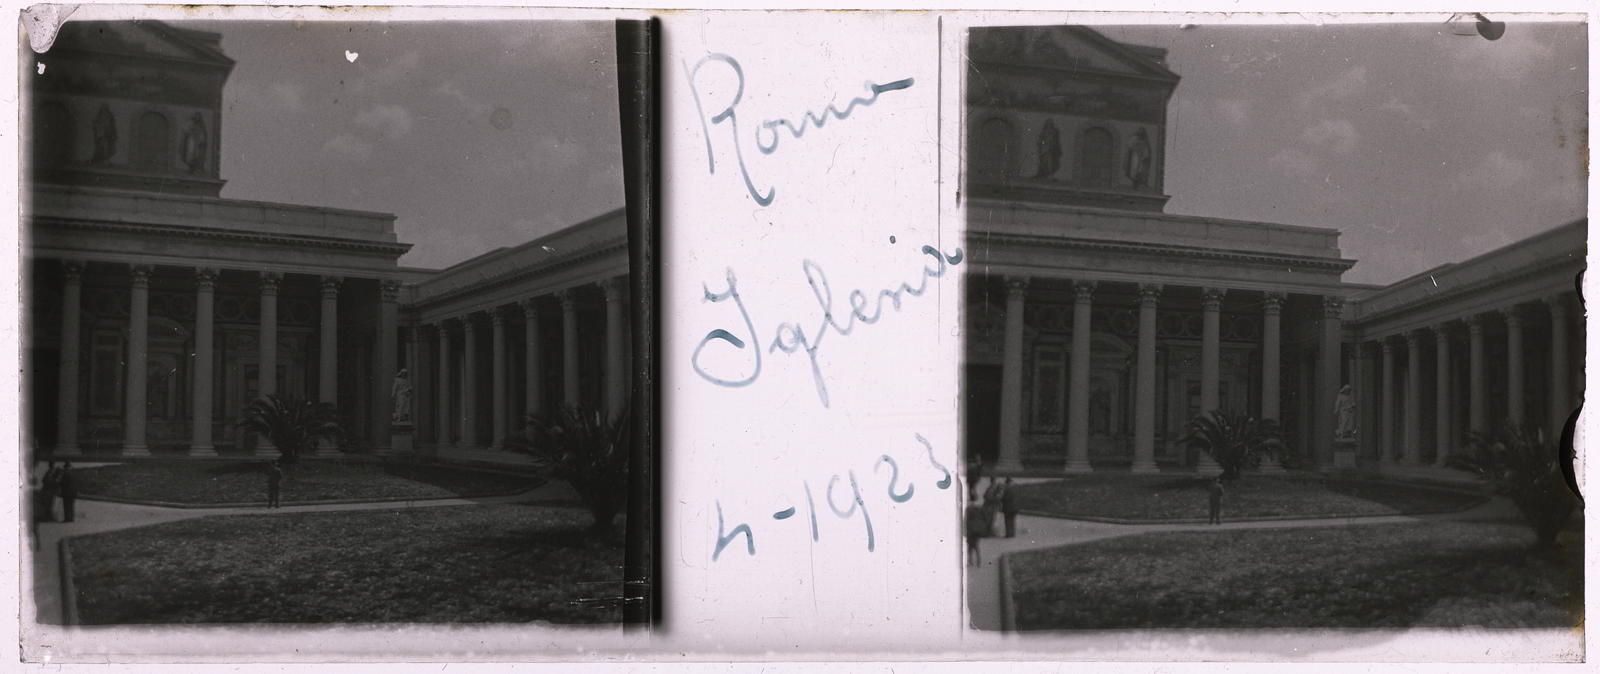 Roma
Iglesia
4-1923